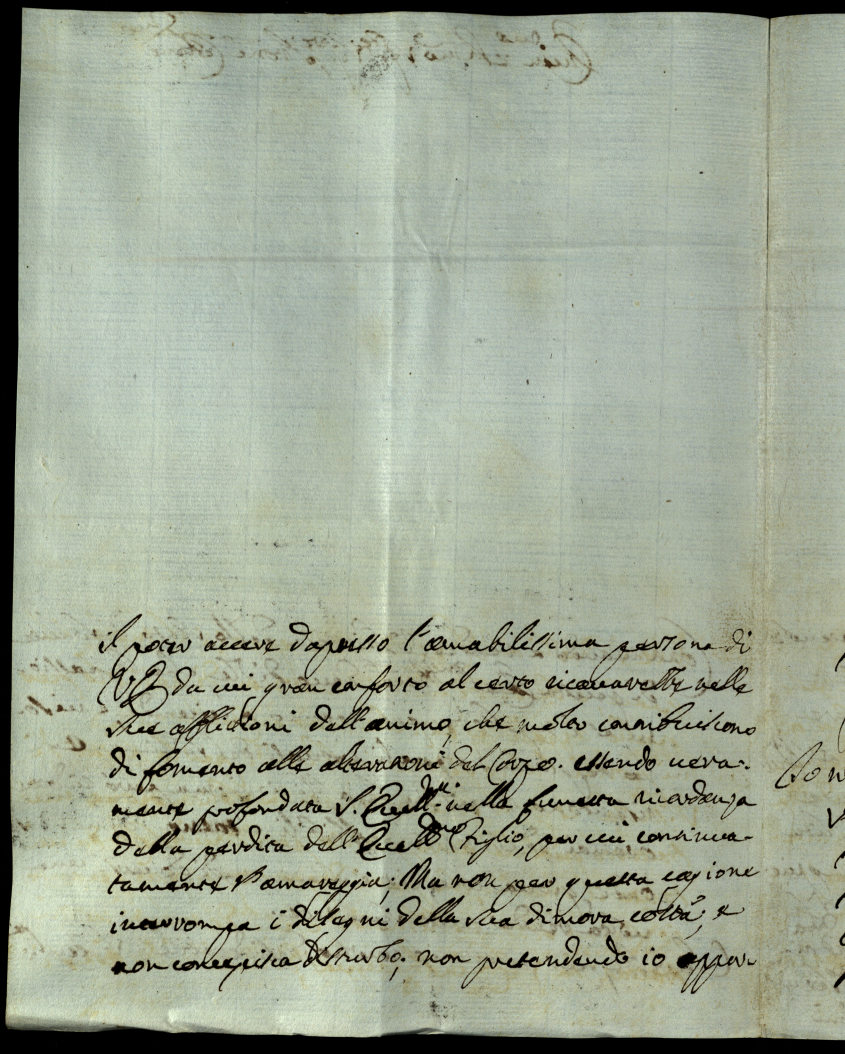 il poter avere dapresso l'amabilissima persona di
VS da cui gran conforto al certo ricavarebbe nelle
sue afflizioni dell'animo, che molto contribuiscono
di fomento alle alterazioni del Corpo. essendo vera-
mente profondata S. Ecell.ª nella funesta ricordanza
della perdita dell'Ecell.mo Figlio, per cui continua-
tamente s'amareggia; Ma non per questa cagione
interrompa i disegni della sua dimora costà, e
non concepisca disturbo, non pretendendo io appor-